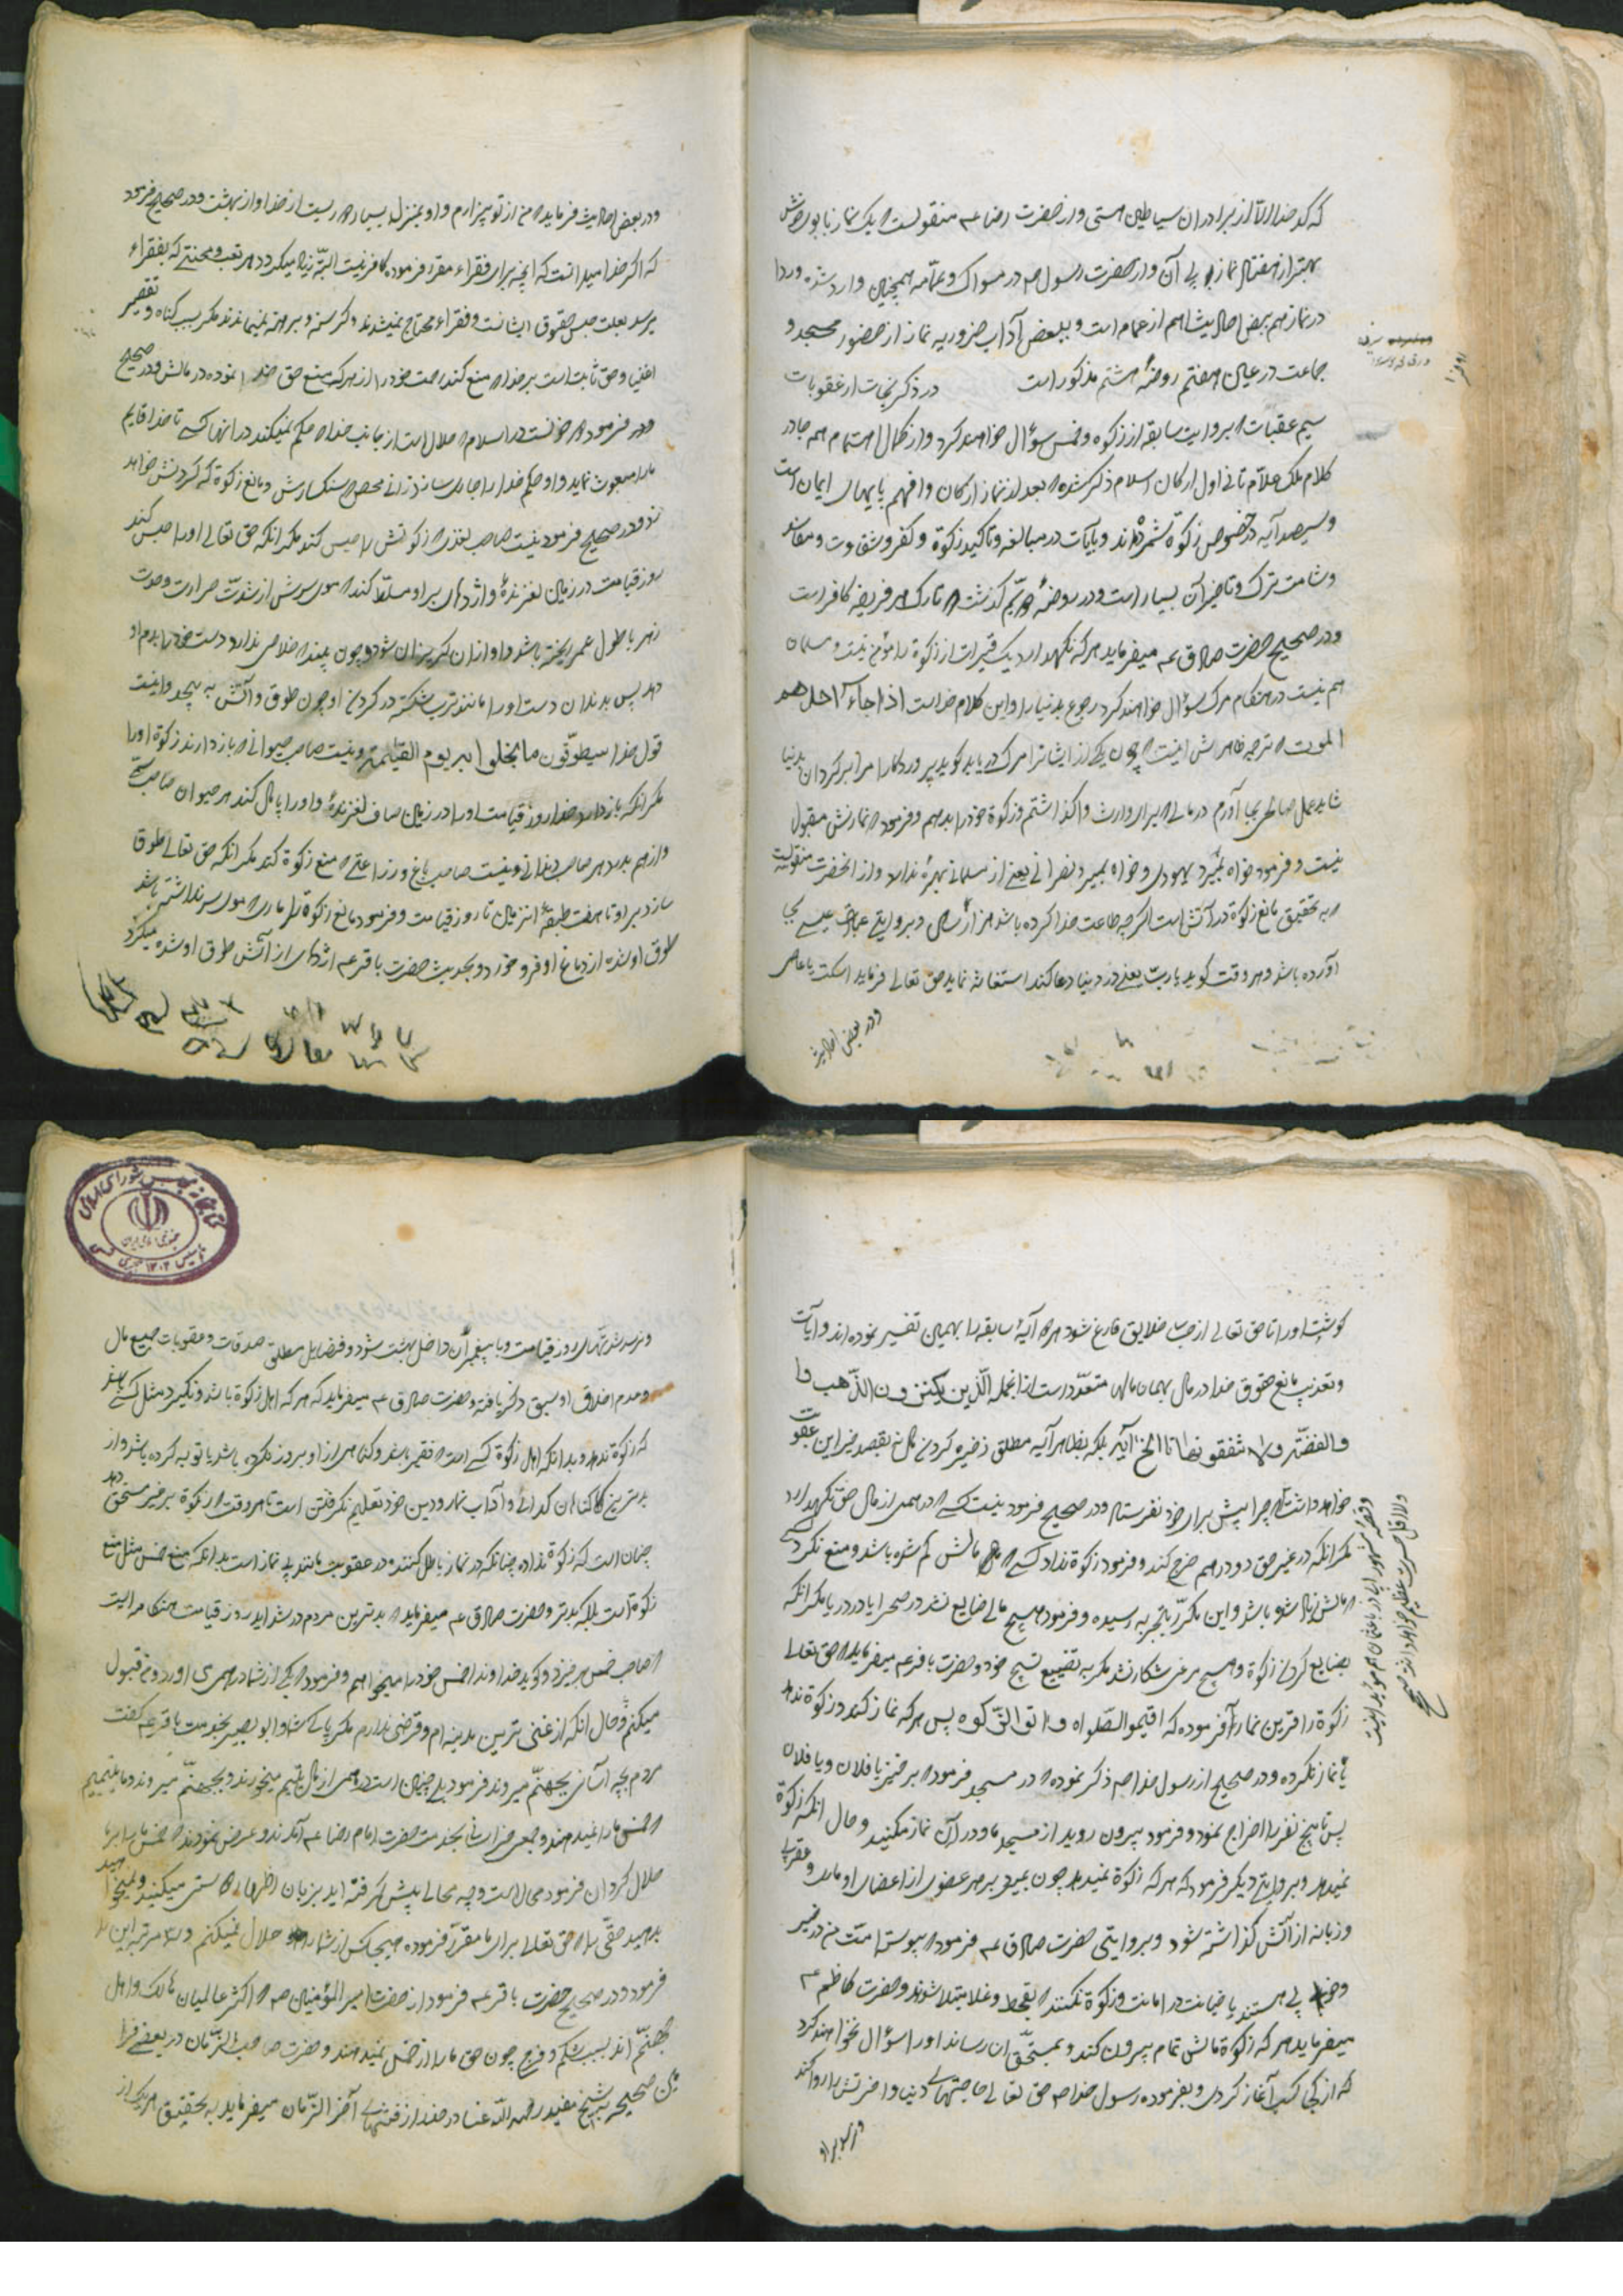 که کدخدا اورا از برادران شیاطین هستی واز حضرت رضا عه منقولست که یک نماز با بوی خوش
بهتر از هفتاد نماز بی آن واز حضرت رسول صه در مسواک وعمامه همچنین وارد شده وردا
در نماز هم ببعض احادیث اهم از عمامه است وببعض آداب ضروریه نماز از حضور مسجد و
جماعت در عین هفتم روضهٔ هشتم مذکور است در ذکر نجات از عقوبات
سیم عقبات که بروایت سابقه از زکوة وخمس سؤال خواهند کرد واز کمال اهتمام همه جا در
کلام ملک علّام ثانی اول ارکان اسلام ذکر شده که بعد از نماز ارکان وافهم پایهای ایمان است
وسیصد آیه در خصوص زکوة شمرده اند وبآیات در مبالغه وتاکید زکوة وکفر وشقاوت ومفاسد
وشامت ترک وتاخیر آن بسیار است ودر روضهٔ دویّم گذشت که تارک هر فریضه کافر است
ودر صحیح حضرت صادق عه میفرماید هر که نگهدارد یک قیراط از زکوة را مؤمن نیست ومسلمان
هم نیست در هنگام مرگ سؤال خواهند کرد رجوع بدنیا را واین کلام خداست اذا جاء احدهم
الموت که ترجمه ظاهرش اینست که چون یکی از ایشانرا مرگ دریابد گوید پروردگارا مرا برگردان بدنیا
شاید عمل صالحی بجا آورم در مالی که برای وارث واگذاشتم وزکوة خود را بدهم وفرمود که نمازش مقبول
نیست وفرمود خواه بمیرد یهودی وخواه بمیرد نصرانی یعنی از مسلمانی بهرهٔ ندارد واز آنحضرت منقولست
که به تحقیق مانع زکوة در آتش است اگرچه طاعت خدا کرده باشد هزار سال وبروایتی عبادت عیسی بجا
آورده باشد وهر وقت گوید یا ربّ یعنی در دنیا دعا کند استغاثه نماید حق تعالی فرماید اسکت یا عاصی
ودر بعض احادیث
ودر بعض احادیث فرماید که من از تو بیزارم واو بمنزل بسیار دور است از خدا واز بهشت ودر صحیح فرمود
که اگر خدا میدانست که آنچه برای فقراء مقرّر فرموده کافی نیست البتّه زیاد میکرد وهر تعب ومحنتی که بفقراء
میرسد بعلت حبس حقوق ایشانست وفقراء محتاج نمیشدند وگرسنه وبرهنه نمیماندند مگر بسبب گناه وتقصیر
اغنیا وحق ثابت است بر خدا که منع کند رحمت خود را از هر که منع حق خدا نموده در مالش ودر صحیح
ودر فرمود دو خونست در اسلام که حلال است از جانب خدا که حکم نمیکند در آنها کسی تا خدا قایم
ما را مبعوث نماید واو حکم خدا را جاری سازد زانی محصن سنگسارش ومانع زکوة که گردنش خواهد
زد ودر صحیح فرمود نیست صاحب نقدی که زکوتش را حبس کند مگر آنکه حق تعالی اورا حبس کند
روز قیامت در زمین لغزندهٔ واژدهای بر او مسلّط کند که موی سرش از شدّت حرارت وحدت
زهر با طول عمر ریخته باشد واو از آن گریزان شود وچون بیند که خلاصی ندارد دست خود را بدم او
دهد پس بدندان دست اورا مانند ترب شکسته در گردن او چون طوق وآتش به پیچد واینست
قول خدا سیطوّقون ما بخلوا به یوم القیمة ونیست صاحب حیوانی که باز دارند زکوة اورا
مگر آنکه باز دارد خدا روز قیامت اورا در زمین صاف لغزندهٔ واورا پامال کند هر حیوان صاحب
واز هم بدرد هر صاحب دندانی ونیست صاحب باغ وزراعتی که منع زکوة کند مگر آنکه حق تعالی طوق
سازد بر او تا هفت طبقهٔ آنزمین تا روز قیامت وفرمود مانع زکوة را ماری که موی سر نداشته باشد
طوق او شده از دماغ او فرو خورد وبحدیث حضرت باقر عه اژدهای از آتش طوق او شده میگزد
گوشت اورا تا حق تعالی از حساب خلایق فارغ شود وهر آیهٔ سابقه را بهمین تفسیر نموده اند وآیات
وتعذیب مانع حقوق خدا در مال بهمان مالها متعدّد است از آنجمله الّذین یکنزون الذّهب وا
والفضّة ولا ینفقونها تا الخ آیة بلکه بظاهر آیه مطلق ذخیره کردن مال نه بقصد خیر این عقوبت
خواهد داشت که چرا پیش برای خود نفرستاد ودر صحیح فرمود نیست کسی که درهمی از مال حق نگهدارد
مگر آنکه در غیر حق دو درهم خرج کند وفرمود زکوة نداد کسی که مالش کم شده باشد ومنع نکرد کسی
که مالش زیاد شده باشد واین مکرّر بتجربه رسیده وفرمود هیچ مالی ضایع نشد در صحرا یا در دریا مگر آنکه
بضایع کردن زکوة وهیچ مرغی شکار نشد مگر به تضییع تسبیح خود وحضرت باقر عه میفرماید که حق تعالی
زکوة را قرین نماز فرموده که اقیموا الصّلواة واتوا الزّکوة پس هر که نماز کند وزکوة ندهد
یا نماز نکرده ودر صحیح از رسول خدا صه ذکر نموده که در مسجد فرمود که برخیز یا فلان ویا فلان
پس تا پنج نفر را اخراج نمود وفرمود بیرون روید از مسجد ما ودر آن نماز مکنید وحال آنکه زکوة
نمیدهد وبروایتی دیگر فرمود که هر که زکوة نمیدهد چون بمیرد بر هر عضوی از اعضای او مار وعقربی
وزبانه از آتش گذاشته شود وبروایتی حضرت صادق عه فرمود که پیوسته امّت من در خیر
وخوبی هستند تا خیانت در امانت وزکوة نکنند که بقحط وغلا مبتلا شوند وحضرت کاظم عه
میفرماید هر که زکوة مالش تمام بیرون کند وبمستحقّ آن رساند اورا سؤال نخواهند کرد
که از کجا کسب آغاز کردی وبفرموده رسول خدا صه حق تعالی حاجتهای دنیا وآخرتش را روا کند
ونرسد شدّتهای روز قیامت وبا پیغمبران داخل بهشت شود وفضایل مطلق صدقات وعقوبات جمیع مال
وعدم انفاق او سبق ذکر یافته وحضرت صادق عه میفرماید که هر که اهل زکوة باشد ونگیرد مثل کسی باشد
که زکوة ندهد وبدانکه اهل زکوة کسی است که فقیر باشد وگناهی از او بروز نکرده باشد یا توبه کرده باشد واز
بدترین گناهان گدائی وآداب نماز ودین خود تعلیم نگرفتن است تا هر وقت که زکوة بر غیر مستحق دهد
چنان است که زکوة نداده چنانکه در نماز باطل کننده در عقوبت مانند بی نماز است بدانکه منع خمس مثل منع
زکوة است بلکه بدتر وحضرت صادق عه میفرماید که بدترین مردم در شداید روز قیامت هنگامه ایست
که صاحب خمس برخیزد وگوید خداوندا خمس خود را میخواهم وفرمود که یکی از شما درهمی آورد ومن قبول
میکنم وحال آنکه از غنی ترین مدینه ام وقرضی ندارم مگر پاکی شما وابو بصیر بخدمت باقر عه گفت
مردم بچه آسانی بجهنّم میروند فرمود بلی چنین است درهمی از مال یتیم میخورند وبجهنّم میروند وما یتیمیم
که خمس ما را نمیدهند وجمعی خراسانی بخدمت حضرت امام رضا عه آمدند وعرض نمودند که خمس ما را بر ما
حلال گردان فرمود محال است وچه محالی پیش گرفته اید بزبان اظهار دوستی میکنید ونمیخواهید
بدهید حقّی را که حق تعالی برای ما مقرّر فرموده هیچکس از شما را حلال نمیکنم وسه مرتبه این را
فرمود ودر صحیح حضرت باقر عه فرمود از حضرت امیر المؤمنین صه که اکثر عالمیان هالک واهل
جهنّم اند بسبب شکم وفرج چون حق ما را از خمس نمیدهند وحضرت صاحب الزّمان در بعضی فرا
مین صحیحه بشیخ مفید رحمه الله عنا در حذر از فتنهای آخر الزّمان میفرماید به تحقیق هر یک از
کتابخانه مجلس شورای اسلامی
جمهوری اسلامی ایران
تاسیس ۱۳۰۲ هجری شمسی